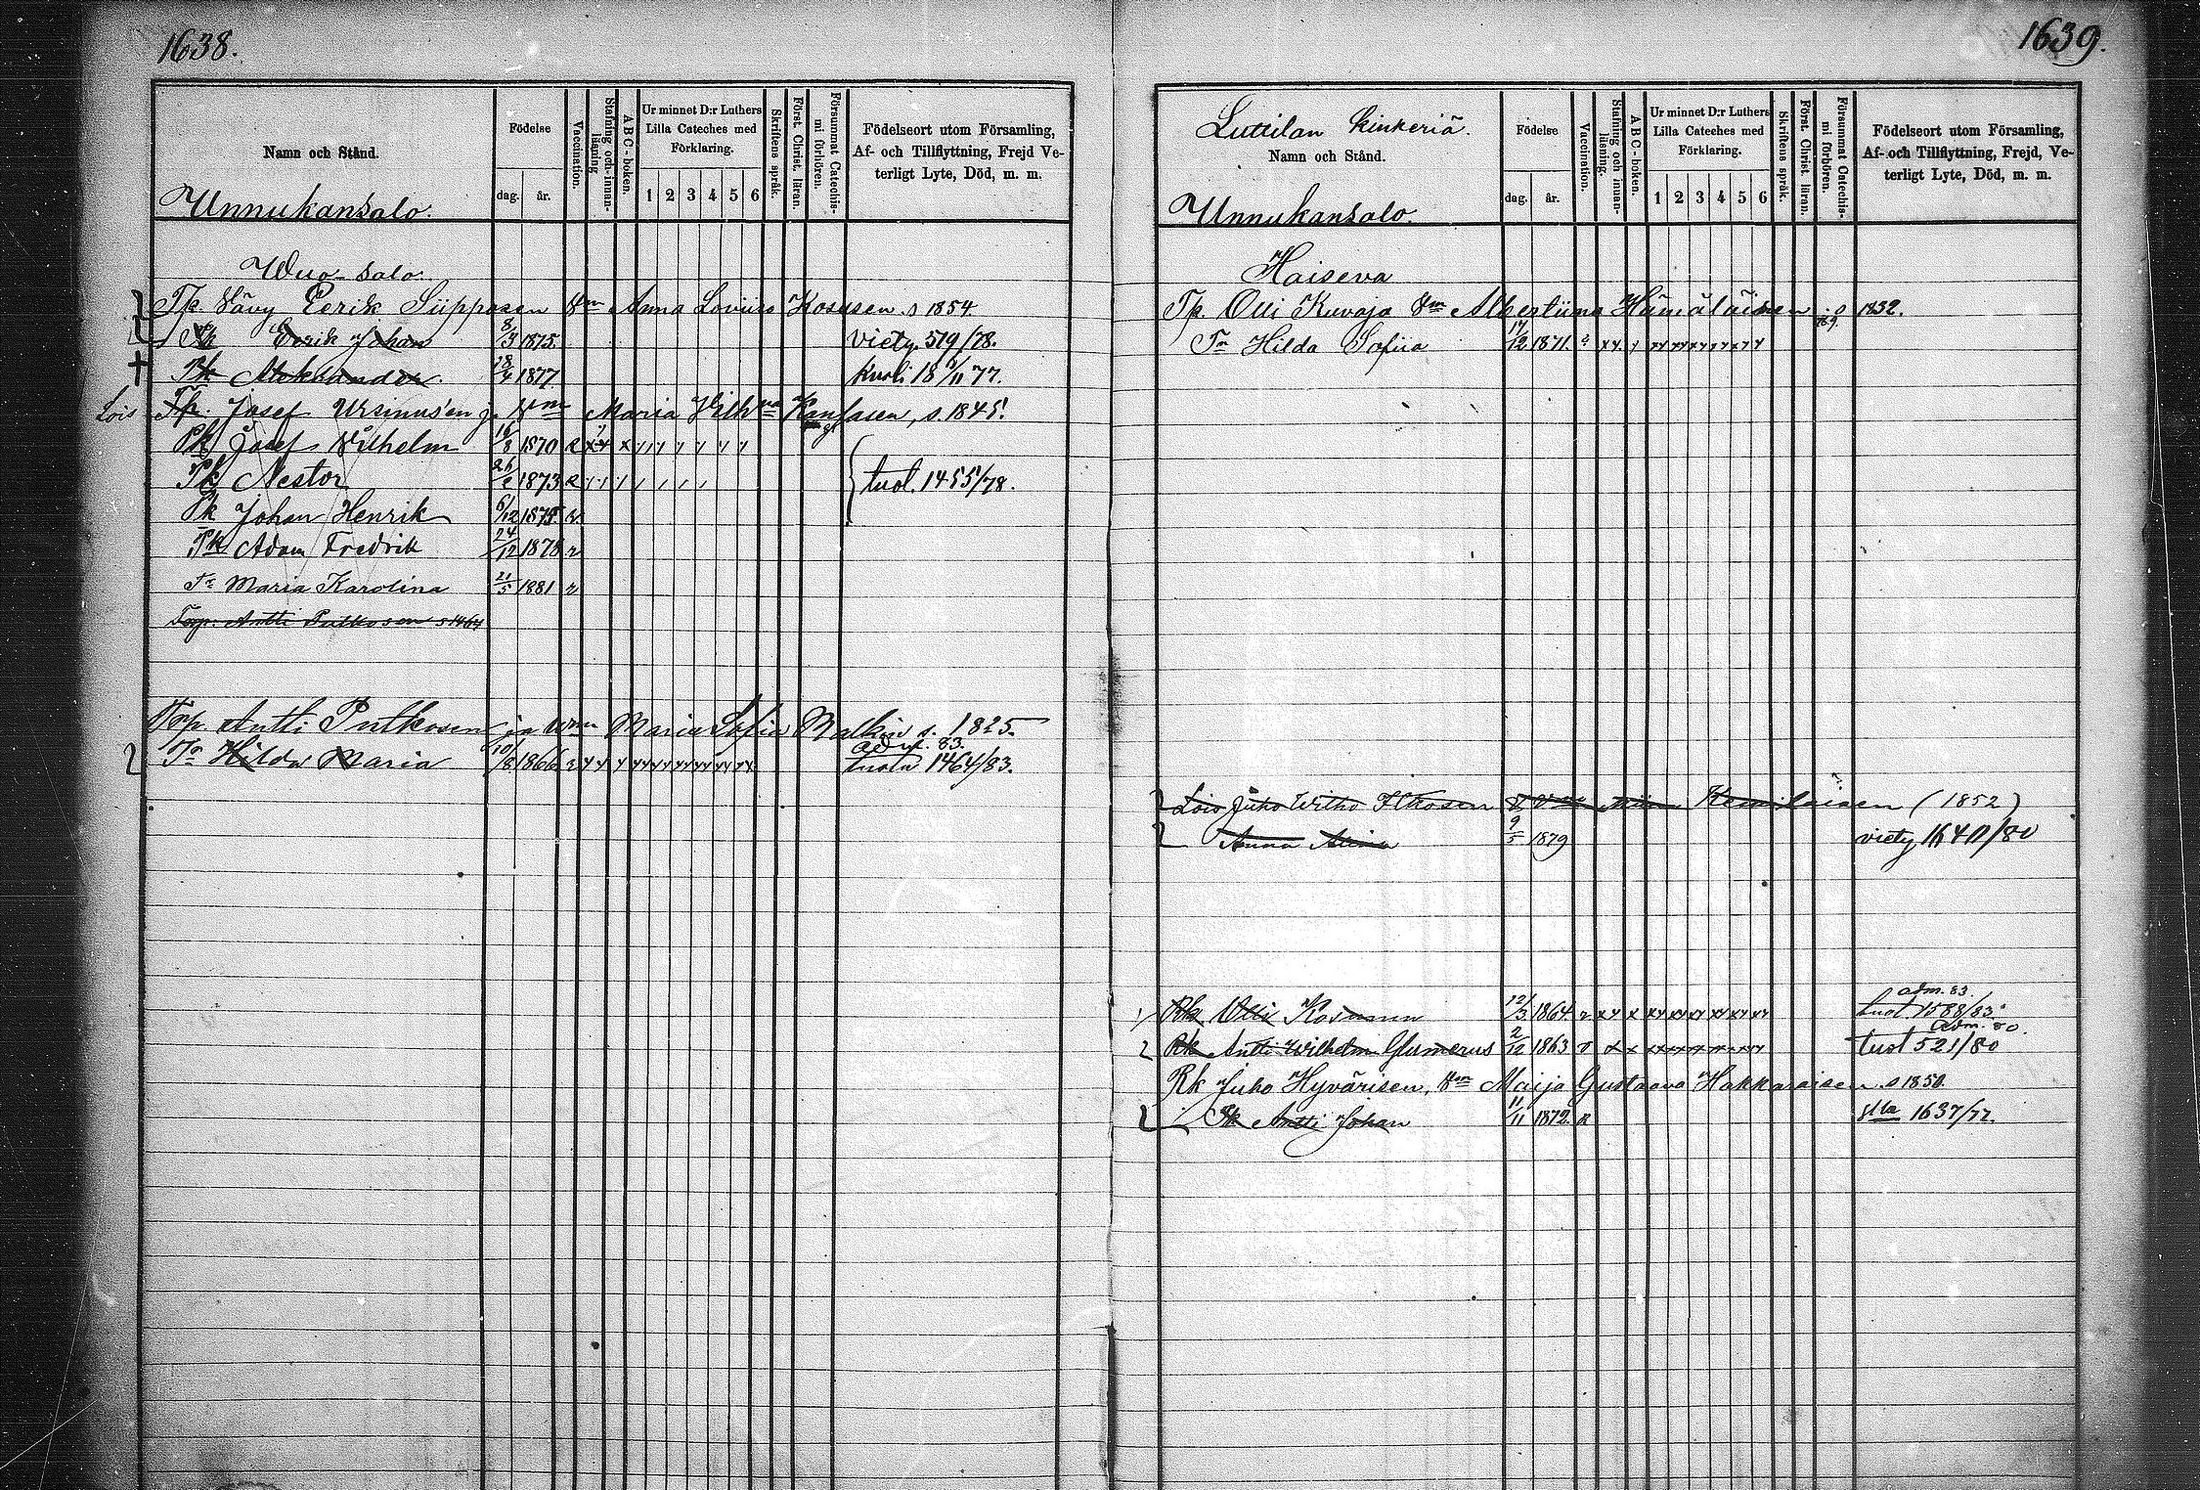 1638.
Namn och Stånd.
Unnukansalo.
Födelse
dag. år.
Vaccination.
Stafning och innanläsning
A B C-boken.
Ur minnet D:r Luthers Lilla Cateches med Förklaring.
1 2 3 4 5 6
Skriftens språk.
Först. Christ. läran.
Försummat Catechismi förhören.
Födelseort utom Församling, Af- och Tillflyttning, Frejd Veterligt Lyte, Död, m. m.
Wuo-salo.
Tp. Vävy Eerik Siipposen Vm Anna Loviisa Kososen s 1854.
Pk Eerik Johan 8/3 1875. viety 519/78.
Pk Aleksander 28/4 1877 kuoli 18 /11 77.
Lois Tp. Josef Ursinus'en j. Vm Maria Vilh Kangasen, s. 1845.
Pk Josef Vilhelm 16/8 1870
Pk Nestor 26/2 1873 tuot. 1455/78.
Pk Johan Henrik 6/12 1875
Pk Adam Fredrik 24/12 1878
Tr Maria Karolina 21/5 1881
Torp. Antti Putkosen s 1464
Torp. Antti Putkosen ja Wmn Maria Sofia Malkin s. 1825.
Tr Hilda Maria 10/8 1866 adm. 83. tuotu 1464/83.
1639.
Luttilan kinkeriä.
Namn och Stånd.
Unnukansalo.
Födelse
dag. år.
Vaccination.
Stafning och innanläsning.
A B C-boken.
Ur minnet D:r Luthers Lilla Cateches med Förklaring.
1 2 3 4 5 6
Skriftens språk.
Först. Christ. läran.
Försummat Catechismi förhören.
Födelseort utom Församling, Af- och Tillflyttning, Frejd, Veterligt Lyte, Död, m. m.
Haiseva
Tp. Olli Kuvaja Vm Albertiina Hämäläinen s 1832.
Tr Hilda Sofiia 17/12 1871.
Lois Juho Wilho Itkosen Kemiläisen (1852)
Anna Alina 9/5 1879 viety 1640/80
Rk Olli Kosunen 12/3 1864 adm. 83. tuot 1588/83.
Rk Antti Wilhelm Glumerus 2/12 1863 adm. 80. tuot 521/80
Rk Juho Hyvärisen, Vm Maija Gustaava Hakkaraisen s 1850.
Pk Antti Johan 11/11 1872. 1637/77.